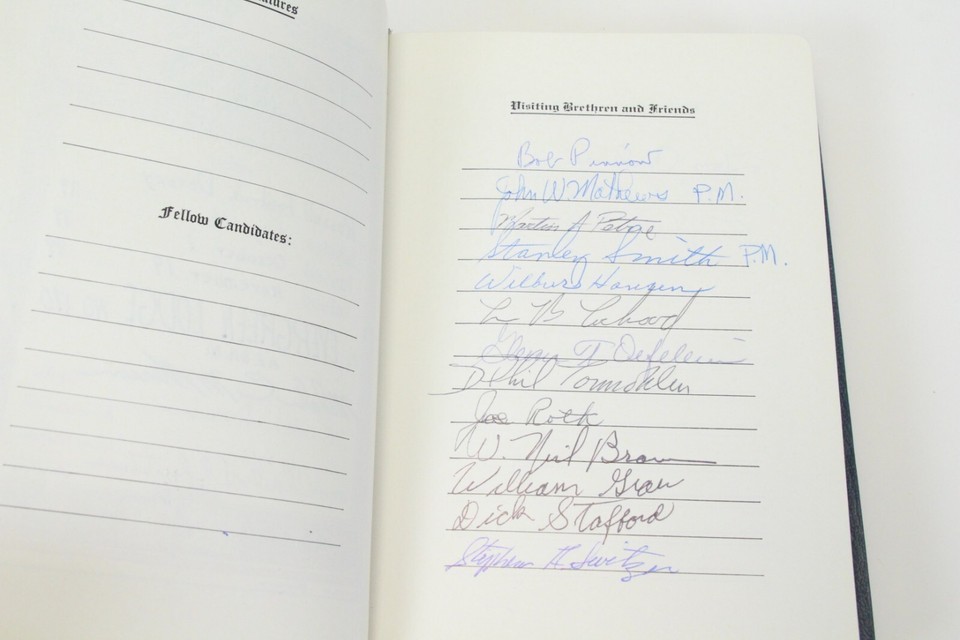 Fellow Candidates:
Visiting Brethren and Friends
Bob
John W. Mathews P.M.
Martin A
Stanley Smith P.M.
Wilburs Hansen
L B
T
Phil
Joe Roth
W. Neil Brown
William Grau
Dick Stafford
Stephen H. Switzer